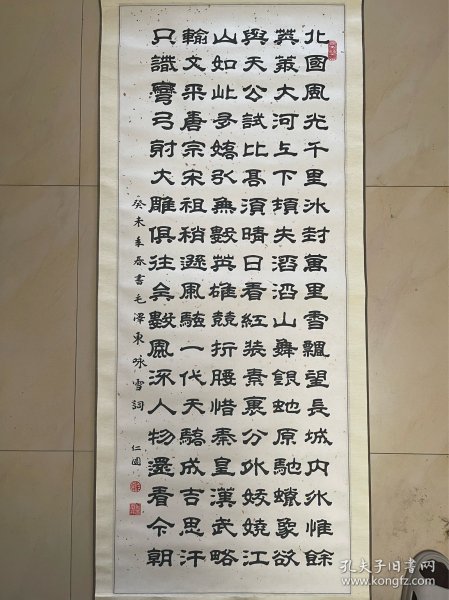 北國風光千里冰封萬里雪飄望長城內外惟餘
莽莽大河上下頓失滔滔山舞銀蛇原馳蠟象欲
與天公試比高須晴日看紅裝素裹分外妖嬈江
山如此多嬌引無數英雄競折腰惜秦皇漢武略
輸文采唐宗宋祖稍遜風騷一代天驕成吉思汗
只識彎弓射大雕俱往矣數風流人物還看今朝
癸未季春書毛澤東咏雪詞 仁
孔夫子旧书网
www.kongfz.com